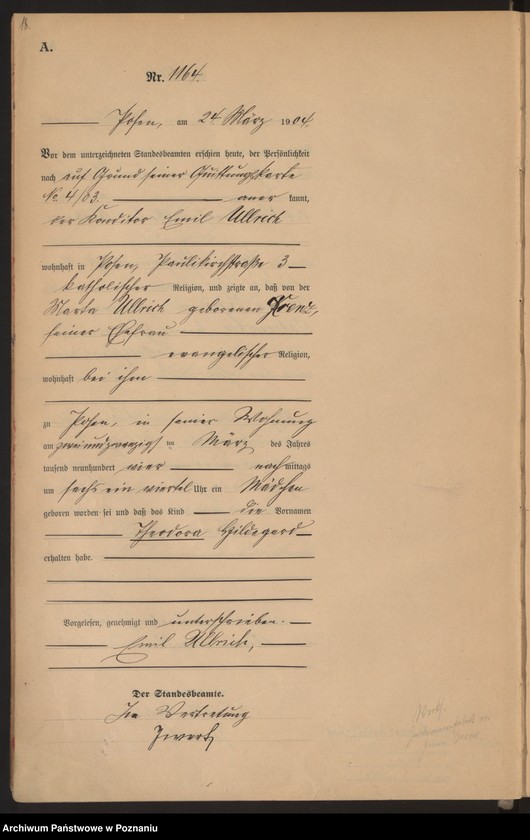 18.
A.
Nr. 1164.
Posen, am 24 März 1904
Vor dem unterzeichneten Standesbeamten erschien heute, der Persönlichkeit
nach auf Grund seiner Quittungskarte
No 4/03. aner kannt,
der Konditor Emil Ullrich
wohnhaft in Posen, Paulikirchstraße 3
katholischer Religion, und zeigte an, daß von der
Marta Ullrich geborenen
seiner Ehefrau
evangelischer Religion,
wohnhaft bei ihm
zu Posen, in seiner Wohnung
am zweiundzwanzigsten März des Jahres
tausend neunhundert vier nach mittags
um sechs ein viertel Uhr ein Mädchen
geboren worden sei und daß das Kind die Vornamen
Theodora Hildegard
erhalten habe.
Vorgelesen, genehmigt und unterschrieben.
Emil Ullrich,
Der Standesbeamte.
In Vertretung
Archiwum Państwowe w Poznaniu